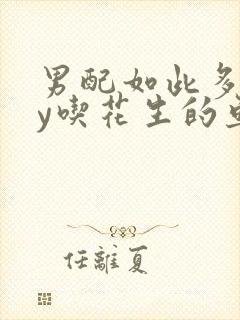 男配如此多
y喫花生的
任離夏